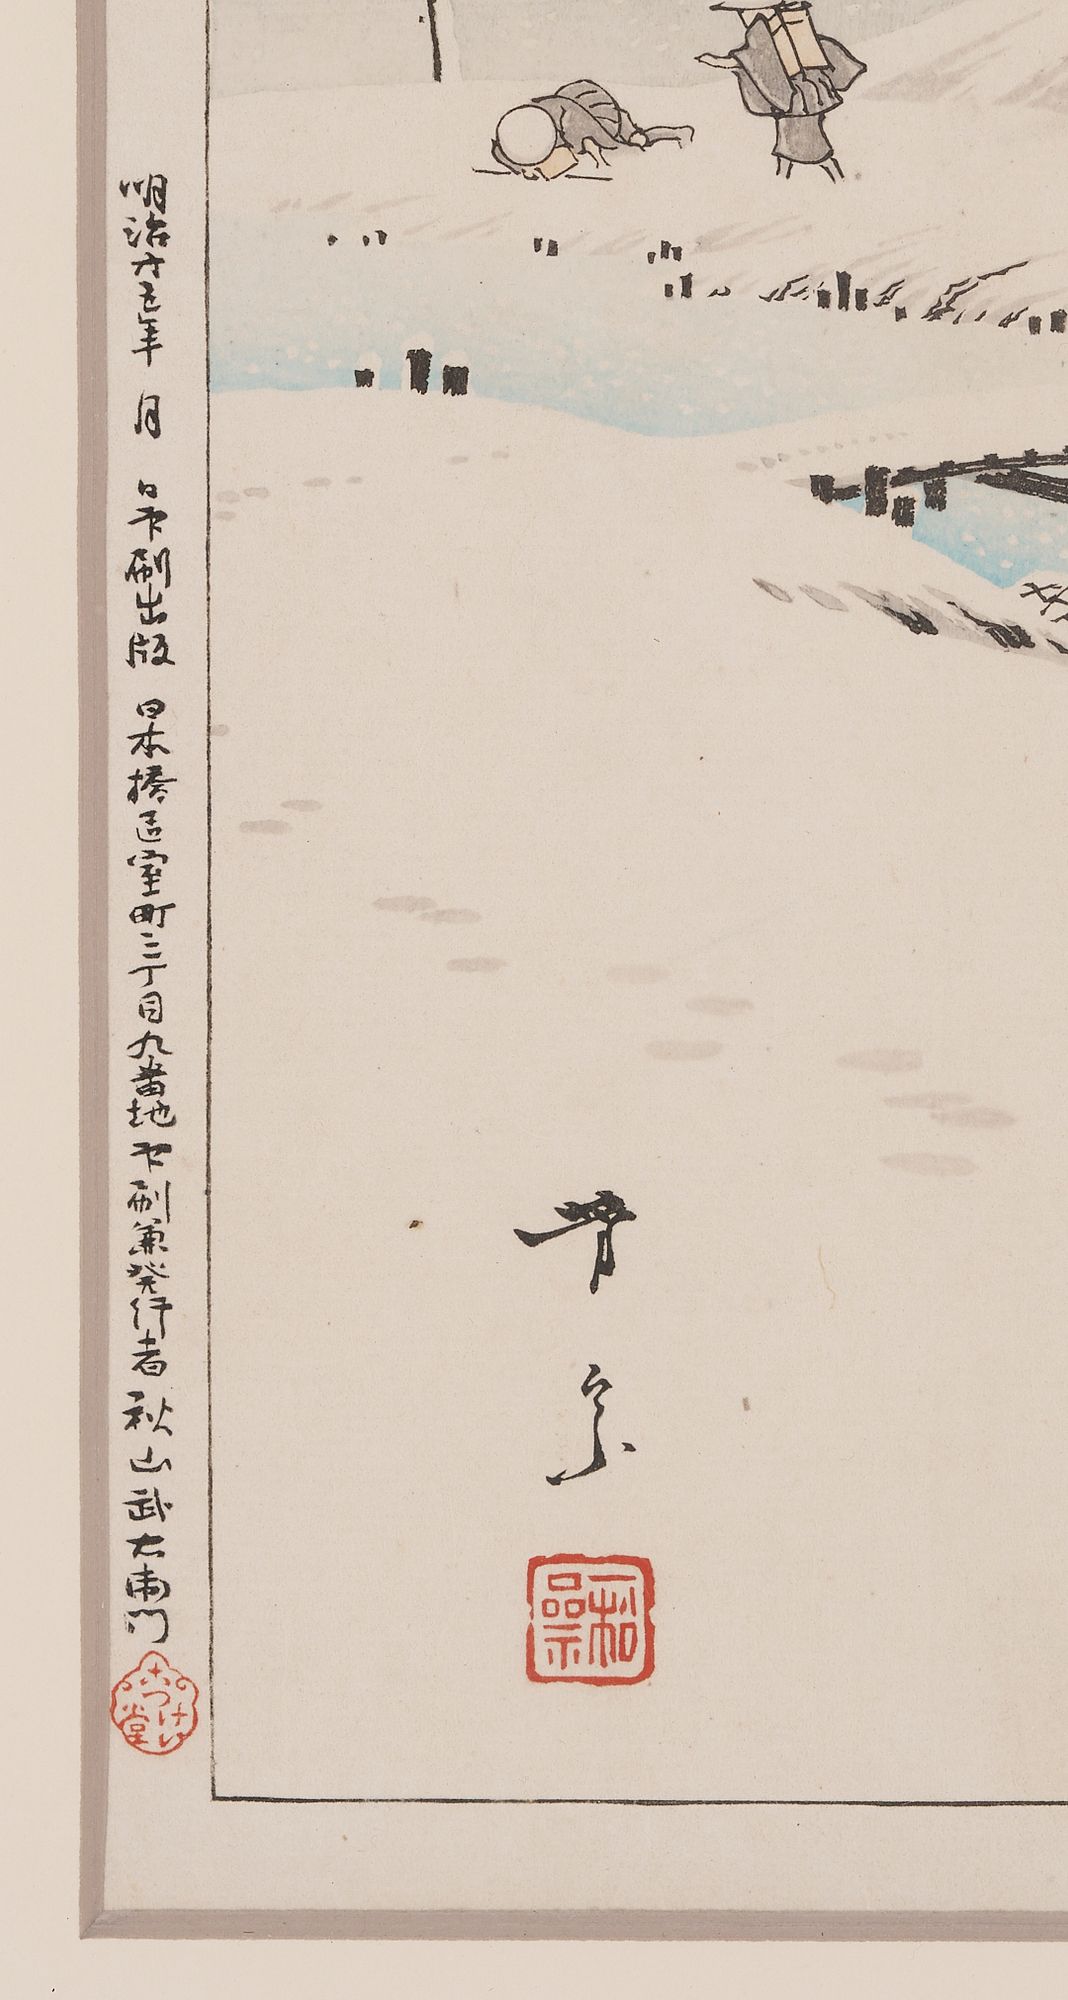 明治廿五年 月 日印刷出版 日本橋区室町三丁目九番地印刷兼発行者 秋山武右衛門
こつけい堂
芳宗
一松齋